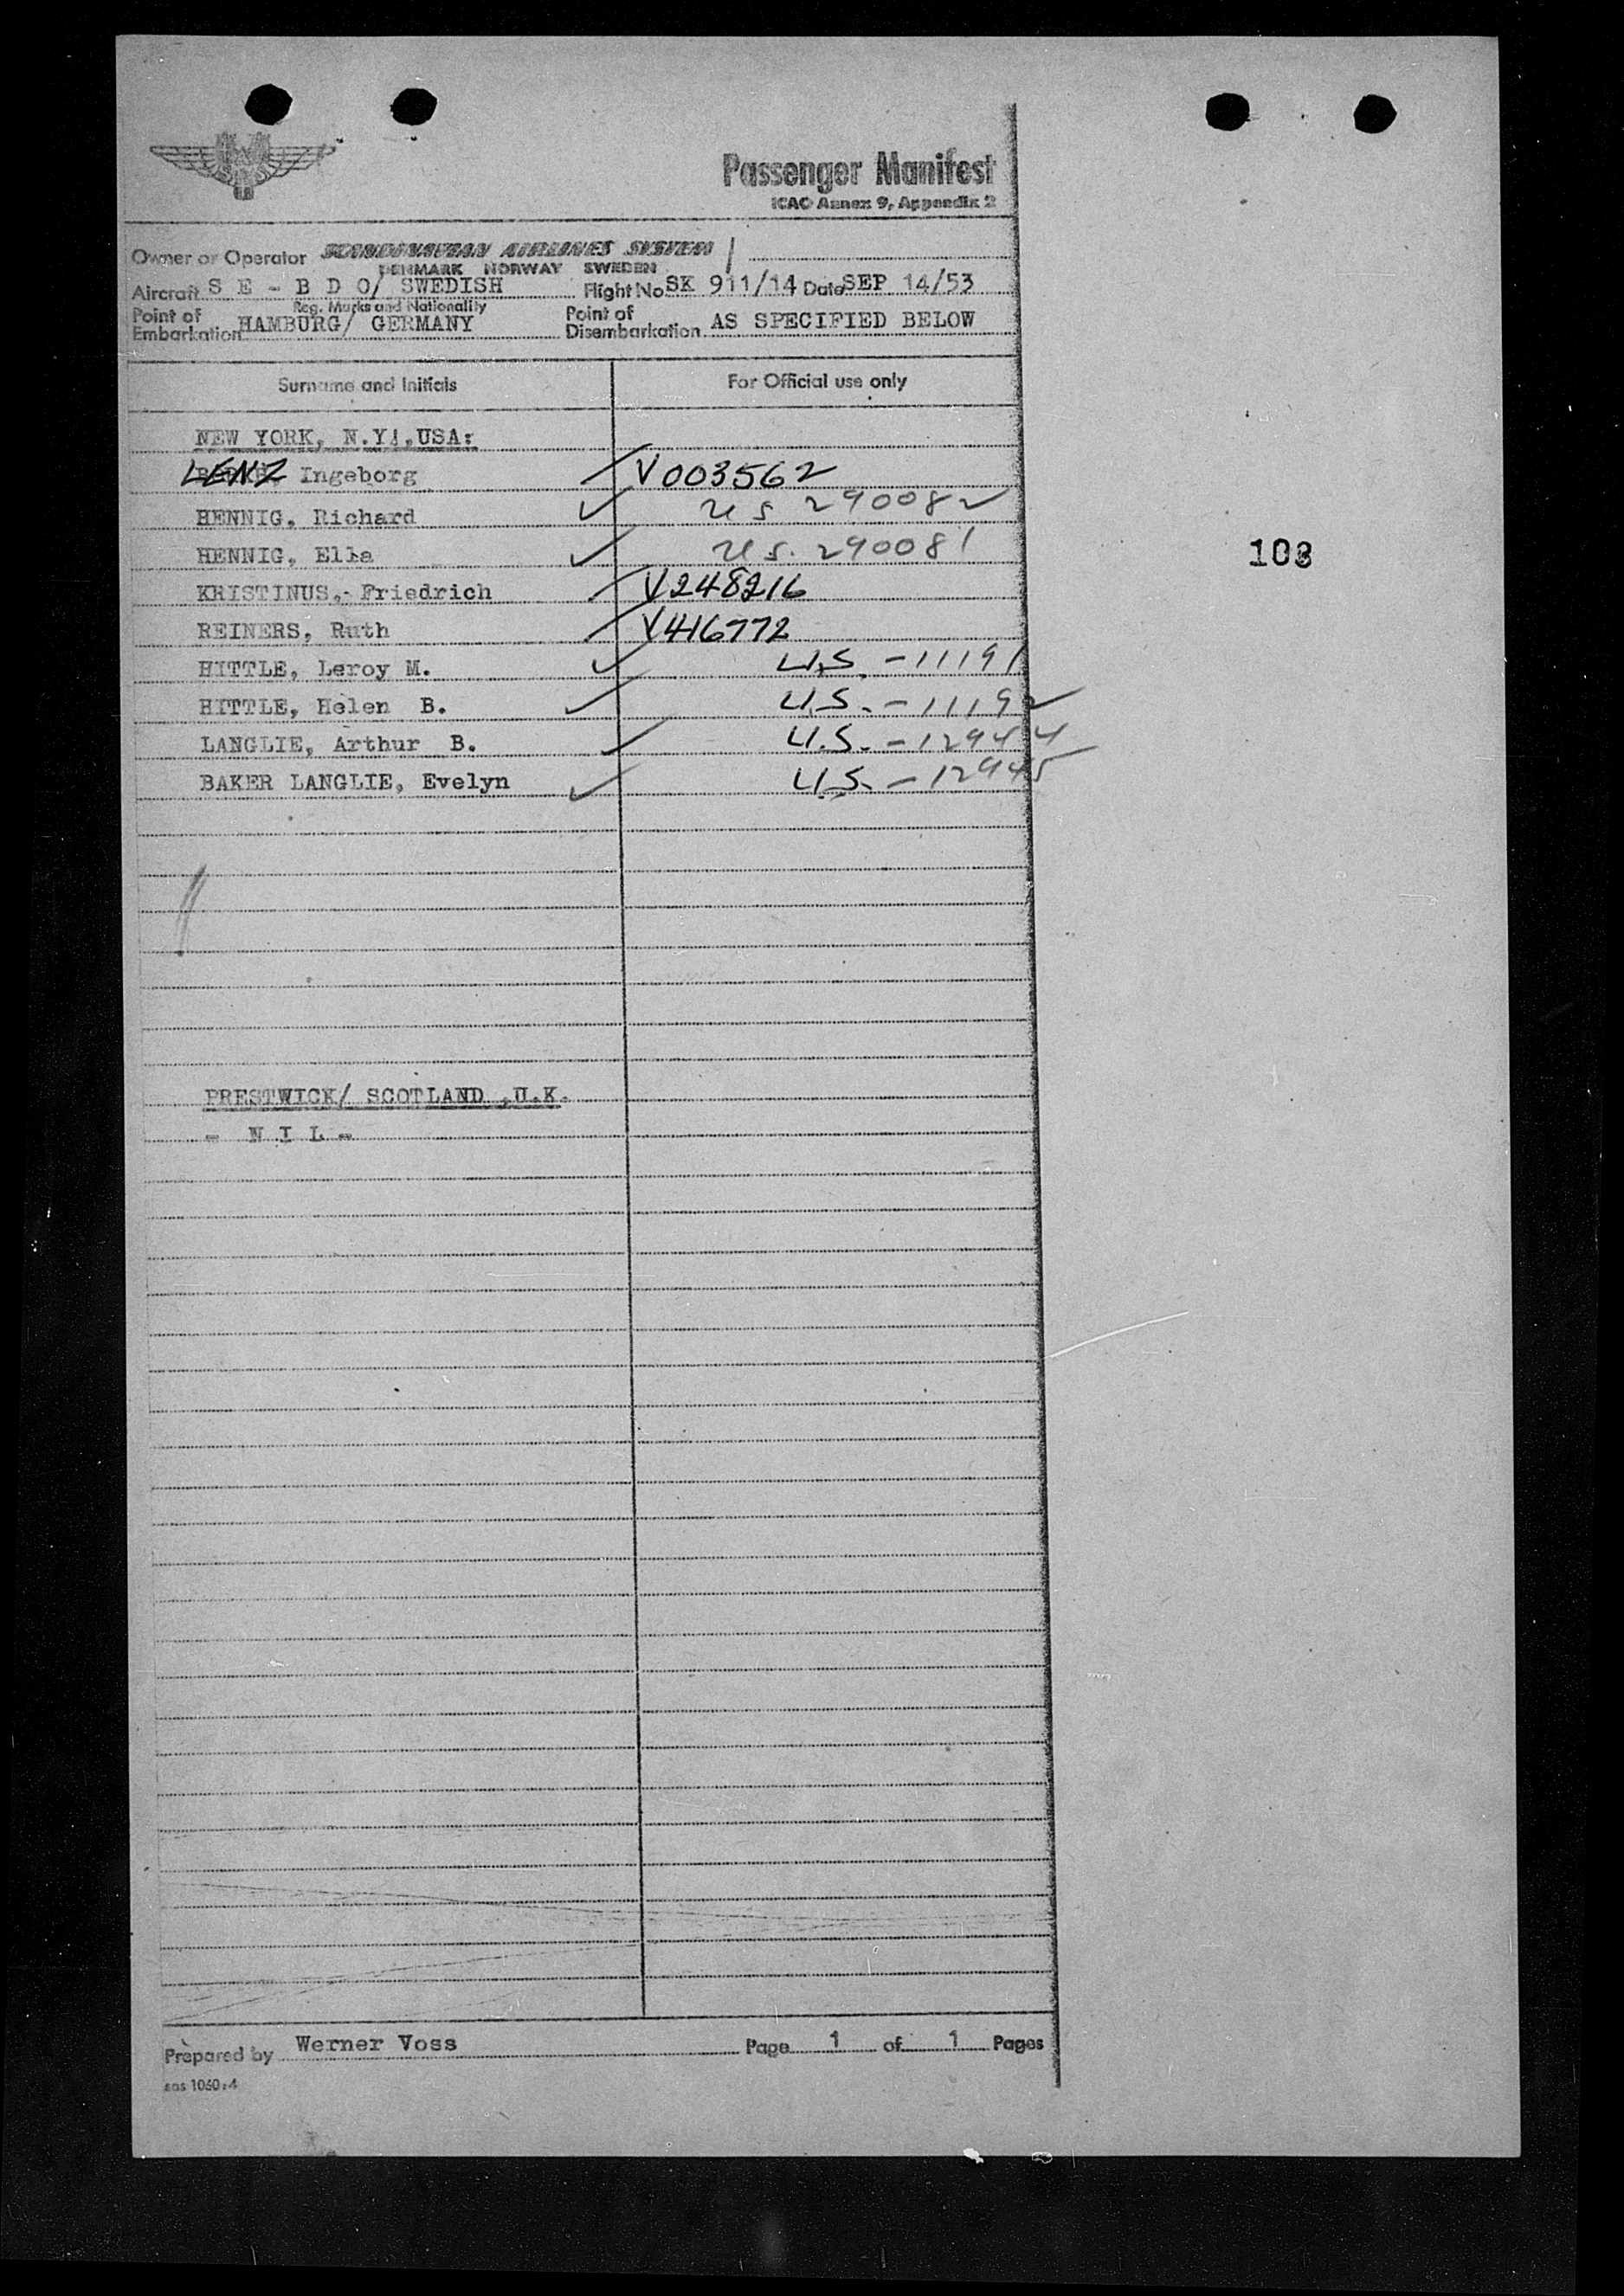 Passenger Manifest
ICAO Annex 9, Appendix 2
Owner or Operator SCANDINAVIAN AIRLINES SYSTEM
DENMARK NORWAY SWEDEN
Aircraft S E - B D O/ SWEDISH Flight No SK 911/14 Date SEP 14/53
Reg. Marks and Nationality
Point of Embarkation HAMBURG/ GERMANY Point of Disembarkation AS SPECIFIED BELOW
Surname and Initials For Official use only
NEW YORK, N.Y.,USA:
LENZ Ingeborg V003562
HENNIG, Richard U S 290082
HENNIG, Ella U S. 290081
103
KRISTINUS, Friedrich V248216
REINERS, Ruth V416772
HITTLE, Leroy M. U.S. - 11191
HITTLE, Helen B. U.S. - 11192
LANGLIE, Arthur B. U.S. - 12944
BAKER LANGLIE, Evelyn U.S. - 12945
PRESTWICK/ SCOTLAND ,U.K.
- N I L -
Prepared by Werner Voss Page 1 of 1 Pages
sas 1060:4